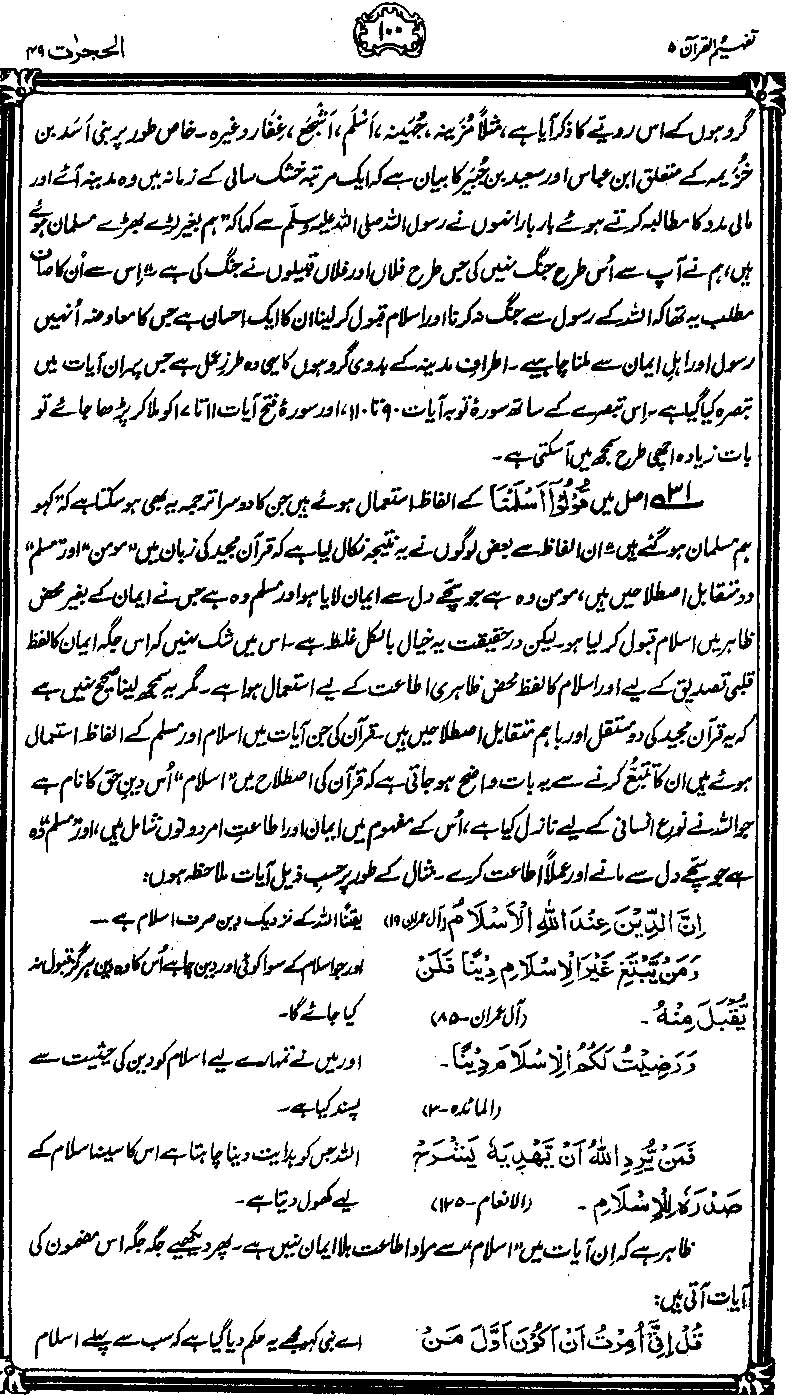 تفہیم القرآن ۵
۱۰۰
الحجرٰت ۴۹
گروہوں کے اس رویّے کا ذکر آیا ہے، مثلاً مُزَینہ، جُہَینہ، اَسْلَم، اَشْجَع، غِفار وغیرہ۔ خاص طور پر بنی اَسَد بن
خُزیمہ کے متعلق ابن عباس اور سعید بن جُبَیر کا بیان ہے کہ ایک مرتبہ خشک سالی کے زمانہ میں وہ مدینہ آئے اور
مالی مدد کا مطالبہ کرتے ہوئے بار بار انہوں نے رسول اللہ صلی اللہ علیہ وسلم سے کہا کہ "ہم بغیر لڑے بھڑے مسلمان ہوئے
ہیں، ہم نے آپ سے اُس طرح جنگ نہیں کی جس طرح فلاں اور فلاں قبیلوں نے جنگ کی ہے"۔ اِس سے اُن کا صاف
مطلب یہ تھا کہ اللہ کے رسول سے جنگ نہ کرنا اور اسلام قبول کر لینا ان کا ایک احسان ہے جس کا معاوضہ اُنہیں
رسول اور اہلِ ایمان سے ملنا چاہیے۔ اطرافِ مدینہ کے بدوی گروہوں کا یہی وہ طرزِ عمل ہے جس پر ان آیات میں
تبصرہ کیا گیا ہے۔ اِس تبصرے کے ساتھ سورۂ توبہ آیات ۹۰ تا ۱۱۰، اور سورۂ فتح آیات ۱۱ تا ۱۷ کو ملا کر پڑھا جائے تو
بات زیادہ اچھی طرح سمجھ میں آ سکتی ہے۔
۳۱ اصل میں قُوْلُوْٓا اَسْلَمْنَا کے الفاظ استعمال ہوئے ہیں جن کا دوسرا ترجمہ یہ بھی ہو سکتا ہے کہ "کہو
ہم مسلمان ہو گئے ہیں"۔ ان الفاظ سے بعض لوگوں نے یہ نتیجہ نکال لیا ہے کہ قرآن مجید کی زبان میں "مومن" اور "مسلم"
دو متقابل اصطلاحیں ہیں، مومن وہ ہے جو سچے دل سے ایمان لایا ہو اور مسلم وہ ہے جس نے ایمان کے بغیر محض
ظاہر میں اسلام قبول کر لیا ہو۔ لیکن درحقیقت یہ خیال بالکل غلط ہے۔ اس میں شک نہیں کہ اس جگہ ایمان کا لفظ
قلبی تصدیق کے لیے اور اسلام کا لفظ محض ظاہری اطاعت کے لیے استعمال ہوا ہے۔ مگر یہ سمجھ لینا صحیح نہیں ہے
کہ یہ قرآن مجید کی دو مستقل اور باہم متقابل اصطلاحیں ہیں۔ قرآن کی جن آیات میں اسلام اور مسلم کے الفاظ استعمال
ہوئے ہیں ان کا تتبّع کرنے سے یہ بات واضح ہو جاتی ہے کہ قرآن کی اصطلاح میں "اسلام" اُس دینِ حق کا نام ہے
جو اللہ نے نوعِ انسانی کے لیے نازل کیا ہے، اُس کے مفہوم میں ایمان اور اطاعتِ امر دونوں شامل ہیں، اور "مسلم" وہ
ہے جو سچے دل سے مانے اور عملاً اطاعت کرے۔ مثال کے طور پر حسبِ ذیل آیات ملاحظہ ہوں:
اِنَّ الدِّیْنَ عِنْدَ اللّٰهِ الْاِسْلَامُ (آل عمران ۱۹) یقیناً اللہ کے نزدیک دین صرف اسلام ہے۔
وَمَنْ یَّبْتَغِ غَیْرَ الْاِسْلَامِ دِیْنًا فَلَنْ اور جو اسلام کے سوا کوئی اور دین چاہے اُس کا وہ دین ہرگز قبول نہ
یُّقْبَلَ مِنْهُ۔ (آل عمران-۸۵) کیا جائے گا۔
وَرَضِیْتُ لَکُمُ الْاِسْلَامَ دِیْنًا۔ اور میں نے تمہارے لیے اسلام کو دین کی حیثیت سے
(المائدہ-۳) پسند کیا ہے۔
فَمَنْ یُّرِدِ اللّٰهُ اَنْ یَّهْدِیَهٗ یَشْرَحْ اللہ جس کو ہدایت دینا چاہتا ہے اس کا سینہ اسلام کے
صَدْرَهٗ لِلْاِسْلَامِ۔ (الانعام-۱۲۵) لیے کھول دیتا ہے۔
ظاہر ہے کہ اِن آیات میں "اسلام" سے مراد اطاعت بلا ایمان نہیں ہے۔ پھر دیکھیے جگہ جگہ اس مضمون کی
آیات آتی ہیں:
قُلْ اِنِّیْٓ اُمِرْتُ اَنْ اَکُوْنَ اَوَّلَ مَنْ اے نبی کہو مجھے یہ حکم دیا گیا ہے کہ سب سے پہلے اسلام